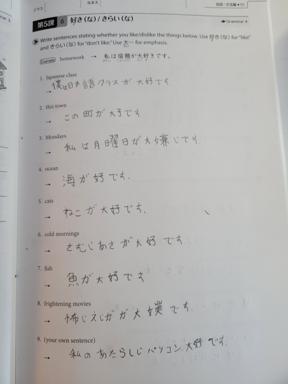 第5課 6 好き(な)/きらい(な)
Write sentences stating whether you like/dislike the things below. Use 好き(な) for "like"
and きらい(な) for "don't like." Use 大～ for emphasis.
Example homework → 私は宿題が大好きです。
1. Japanese class
→ 僕は日本語クラスが大好です。
2. this town
→ この町が大好です
3. Mondays
→ 私は月曜日が大嫌じです
4. ocean
→ 海が好です。
5. cats
→ ねこが大好です.
6. cold mornings
→ さむじあさが大好です
7. fish
→ 魚が大好です
8. frightening movies
→ です.
9. (your own sentence)
→ 私のあたらしじパソコン大好です.